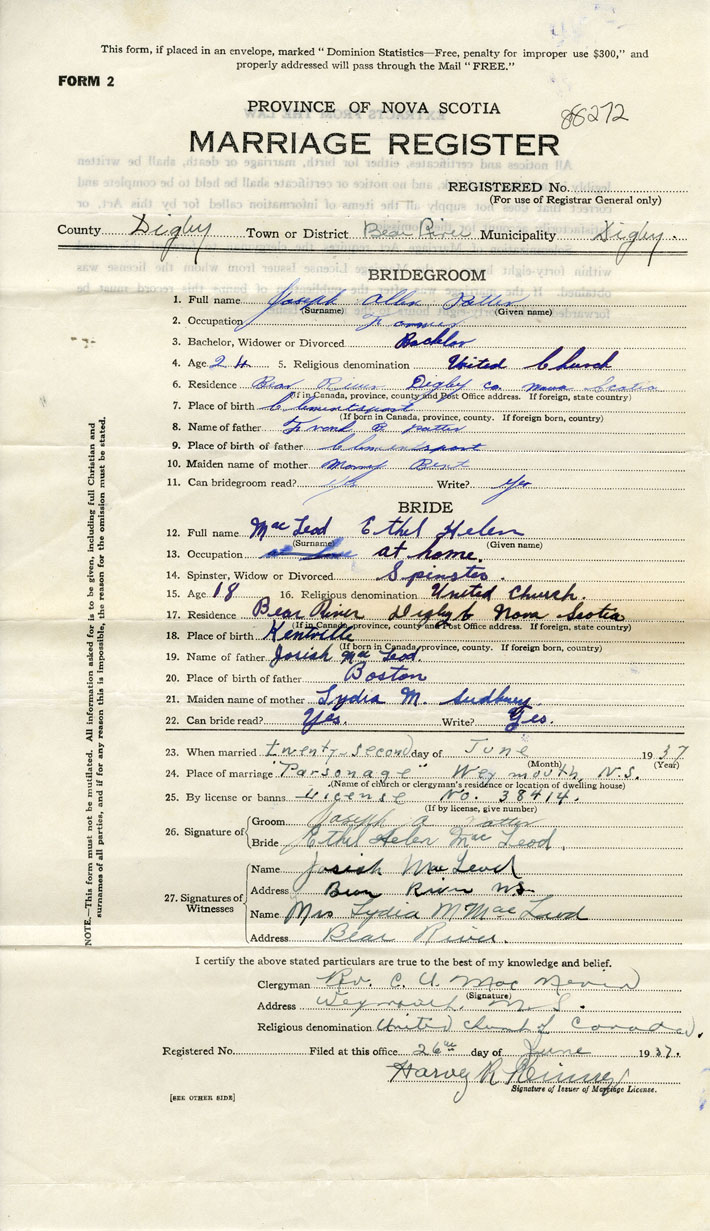 This form, if placed in an envelope, marked "Dominion Statistics—Free, penalty for improper use $300," and
properly addressed will pass through the Mail "FREE."
FORM 2
PROVINCE OF NOVA SCOTIA
88272
MARRIAGE REGISTER
REGISTERED No.
(For use of Registrar General only)
County Digby Town or District Bear River Municipality Digby.
BRIDEGROOM
1. Full name Joseph Allen Potter
(Surname) (Given name)
2. Occupation Farmer
3. Bachelor, Widower or Divorced Bachlor
4. Age 24 5. Religious denomination United Church
6. Residence Bear River Digby co Nova Scotia
(If in Canada, province, county and Post Office address. If foreign, state country)
7. Place of birth Clementsport
(If born in Canada, province, county. If foreign born, country)
8. Name of father Frank B. Potter
9. Place of birth of father Clementsport
10. Maiden name of mother Bent
11. Can bridegroom read? Yes Write? Yes
BRIDE
12. Full name MacLeod Ethel Helen
(Surname) (Given name)
13. Occupation at home.
14. Spinster, Widow or Divorced Spinster.
15. Age 18 16. Religious denomination United Church.
17. Residence Bear River Digby Nova Scotia
(If in Canada, province, county and Post Office address. If foreign, state country)
18. Place of birth Kentville
(If born in Canada, province, county. If foreign born, country)
19. Name of father Josiah MacLeod.
20. Place of birth of father Boston
21. Maiden name of mother Lydia M. Sudbury.
22. Can bride read? Yes. Write? Yes.
23. When married twenty-second day of June 1937
(Month) (Year)
24. Place of marriage "Parsonage" Weymouth, N.S.
(Name of church or clergyman's residence or location of dwelling house)
25. By license or banns License No. 38414.
(If by license, give number)
26. Signature of Groom Joseph A Potter
Bride Ethel Helen MacLeod.
27. Signatures of Witnesses
Name Josiah MacLeod
Address Bear River NS
Name Mrs Lydia M MacLeod
Address Bear River.
I certify the above stated particulars are true to the best of my knowledge and belief.
Clergyman Rev. C. U. Mac Nevin
(Signature)
Address Weymouth, N.S.
Religious denomination United church of Canada.
Registered No. Filed at this office 26th day of June 1937.
Harvey R
Signature of Issuer of Marriage License.
[SEE OTHER SIDE]
NOTE.—This form must not be mutilated. All information asked for is to be given, including full Christian and
surnames of all parties, and if for any reason this is impossible, the reason for the omission must be stated.